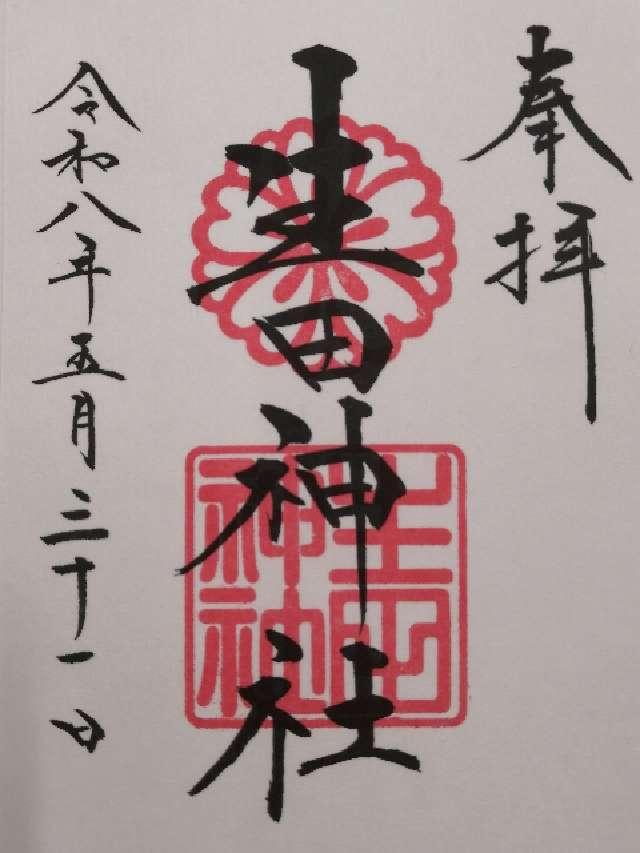 奉拝
生田神社
生田
神社
令和八年五月三十一日